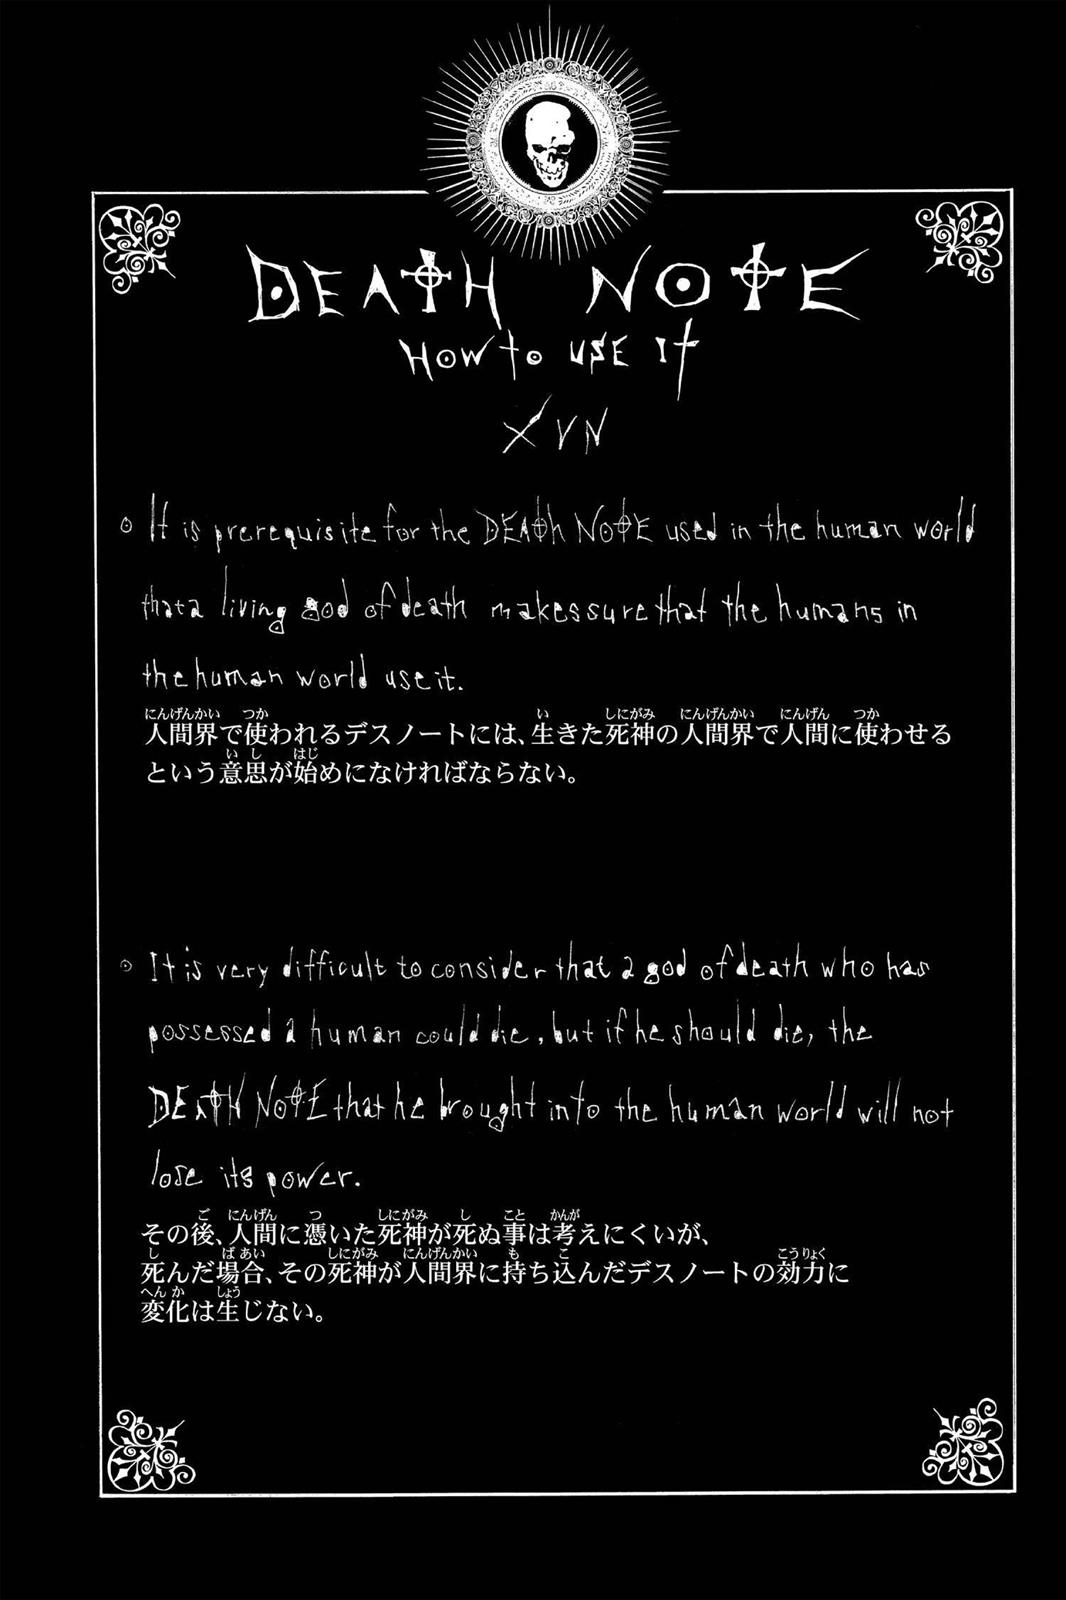 DEATH NOTE
HOW to USE It
XVII
It is prerequisite for the DEATH NOTE used in the human world
that a living god of death makes sure that the humans in
the human world use it.
にんげんかい つか い しにがみ にんげんかい にんげん つか
人間界で使われるデスノートには、生きた死神の人間界で人間に使わせる
いし はじ
という意思が始めになければならない。
It is very difficult to consider that a god of death who has
possessed a human could die, but if he should die, the
DEATH NOTE that he brought into the human world will not
lose its power.
ご にんげん つ しにがみ し こと かんが
その後、人間に憑いた死神が死ぬ事は考えにくいが、
し ばあい しにがみ にんげんかい も こ こうりょく
死んだ場合、その死神が人間界に持ち込んだデスノートの効力に
へんか しょう
変化は生じない。